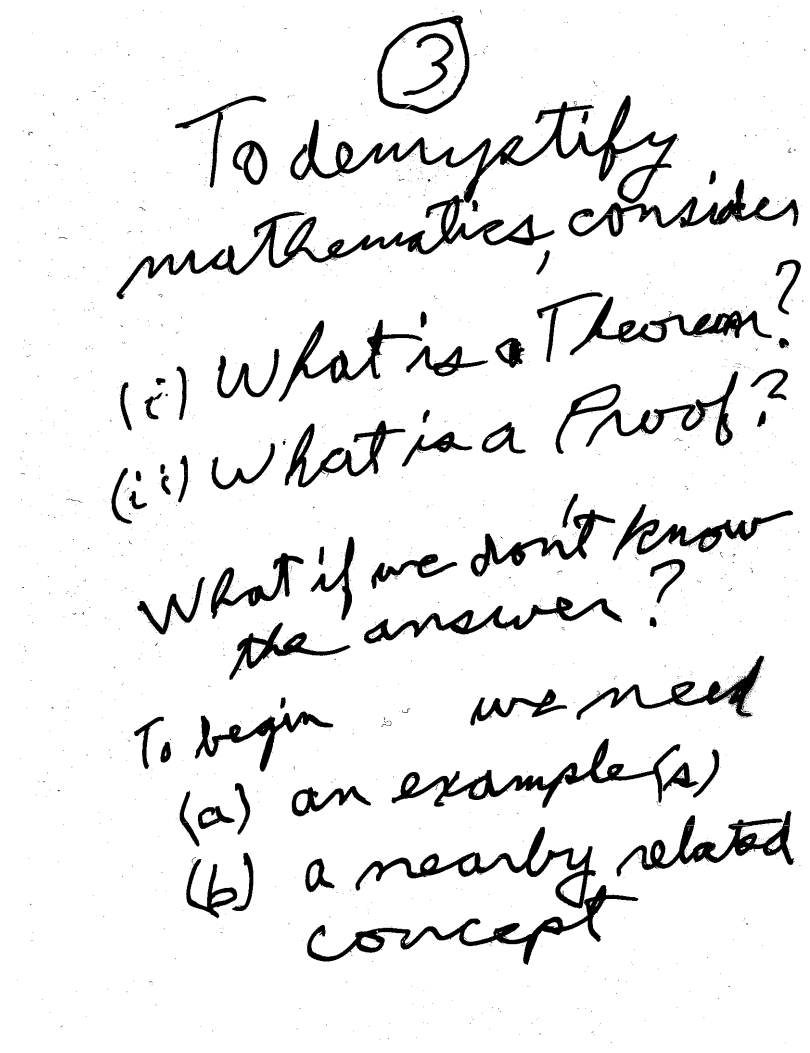 3
To demystify
mathematics, consider
(i) What is a Theorem?
(ii) What is a Proof?
What if we don't know
the answer?
To begin we need
(a) an example(s)
(b) a nearby related
concept